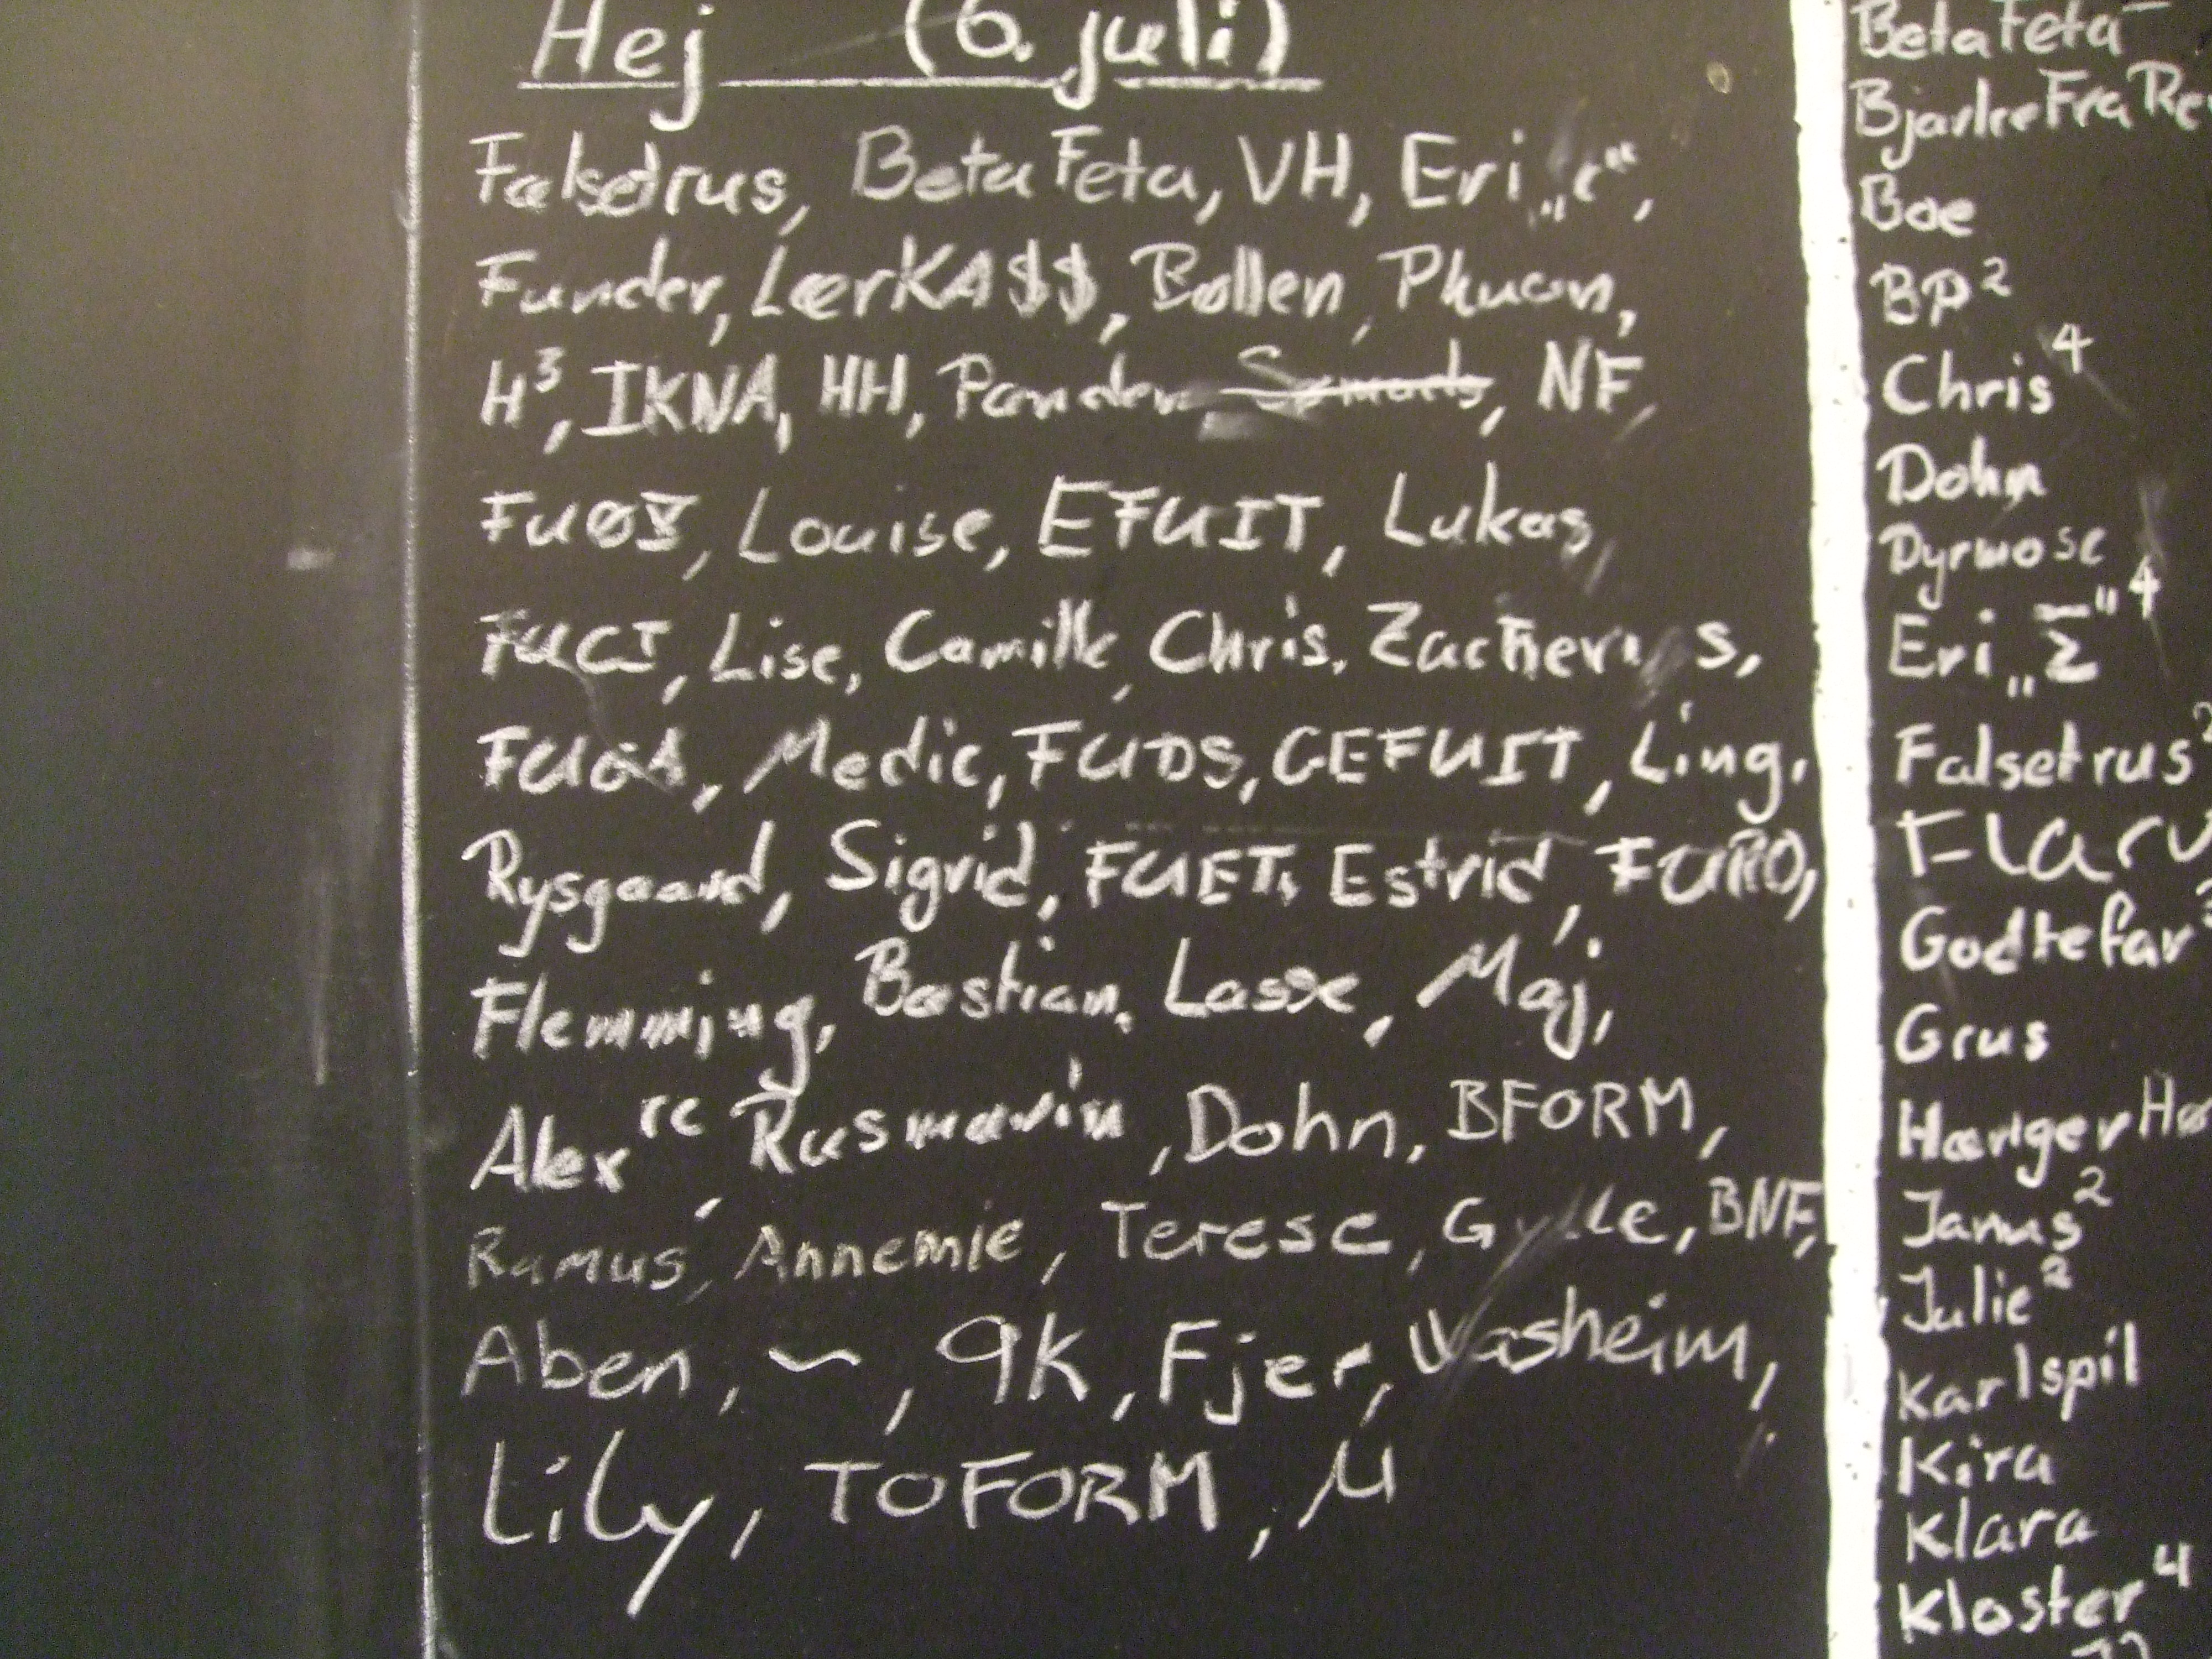 Hej (6. juli)
Falsetrus, BetaFeta, VH, Eri„c“,
Funder, LærKA$$, Bøllen, Phuon,
H³, IKNA, HH, Panden, NF,
FUØV, Louise, EFUIT, Lukas,
FUCT, Lise, Camille, Chris, Zacherias,
FUGA, Medic, FUDS, GEFUIT, Ling,
Rysgaard, Sigrid, FUET, Estrid, FURO,
Flemming, Bastian, Lasse, Maj,
Alex rc, Rusmarin, Dohn, BFORM,
Ramus, Annemie, Terese, BNF,
Aben, ~, 9K, Fjer, Washeim,
Lily, TOFORM, μ
BetaFeta
BjarkeFraRe
Boe
BP²
Chris⁴
Dohn
Dyrmose
Eri„Σ“⁴
Falsetrus²
Godtefar
Grus
Hærger Hø
Janus²
Julie²
Karlspil
Kira
Klara
Kloster⁴